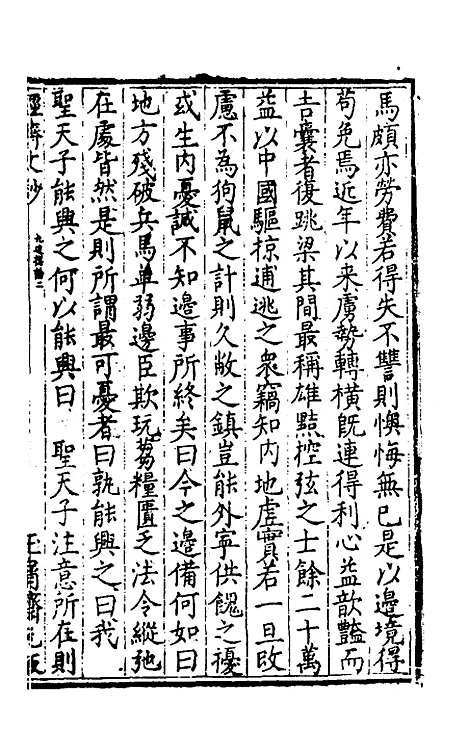 馬頗亦勞費若得失不讐則懊悔無已是以邊境得
苟免焉近年以来虜勢轉横旣連得利心益歆豔而
吉囊者復跳梁其間最稱雄黠控弦之士餘二十萬
益以中國驅掠逋逃之衆竊知内地虚實若一旦改
慮不為狗鼠之計則久敝之鎮豈能外寧供餽之擾
或生内憂誠不知邊事所終矣曰今之邊備何如曰
地方殘破兵馬單弱邊臣欺玩芻糧匱乏法令縱弛
在處皆然是則所謂最可憂者曰孰能興之曰我
聖天子能興之何以能興曰 聖天子注意所在則
經濟文鈔 九邊總論二